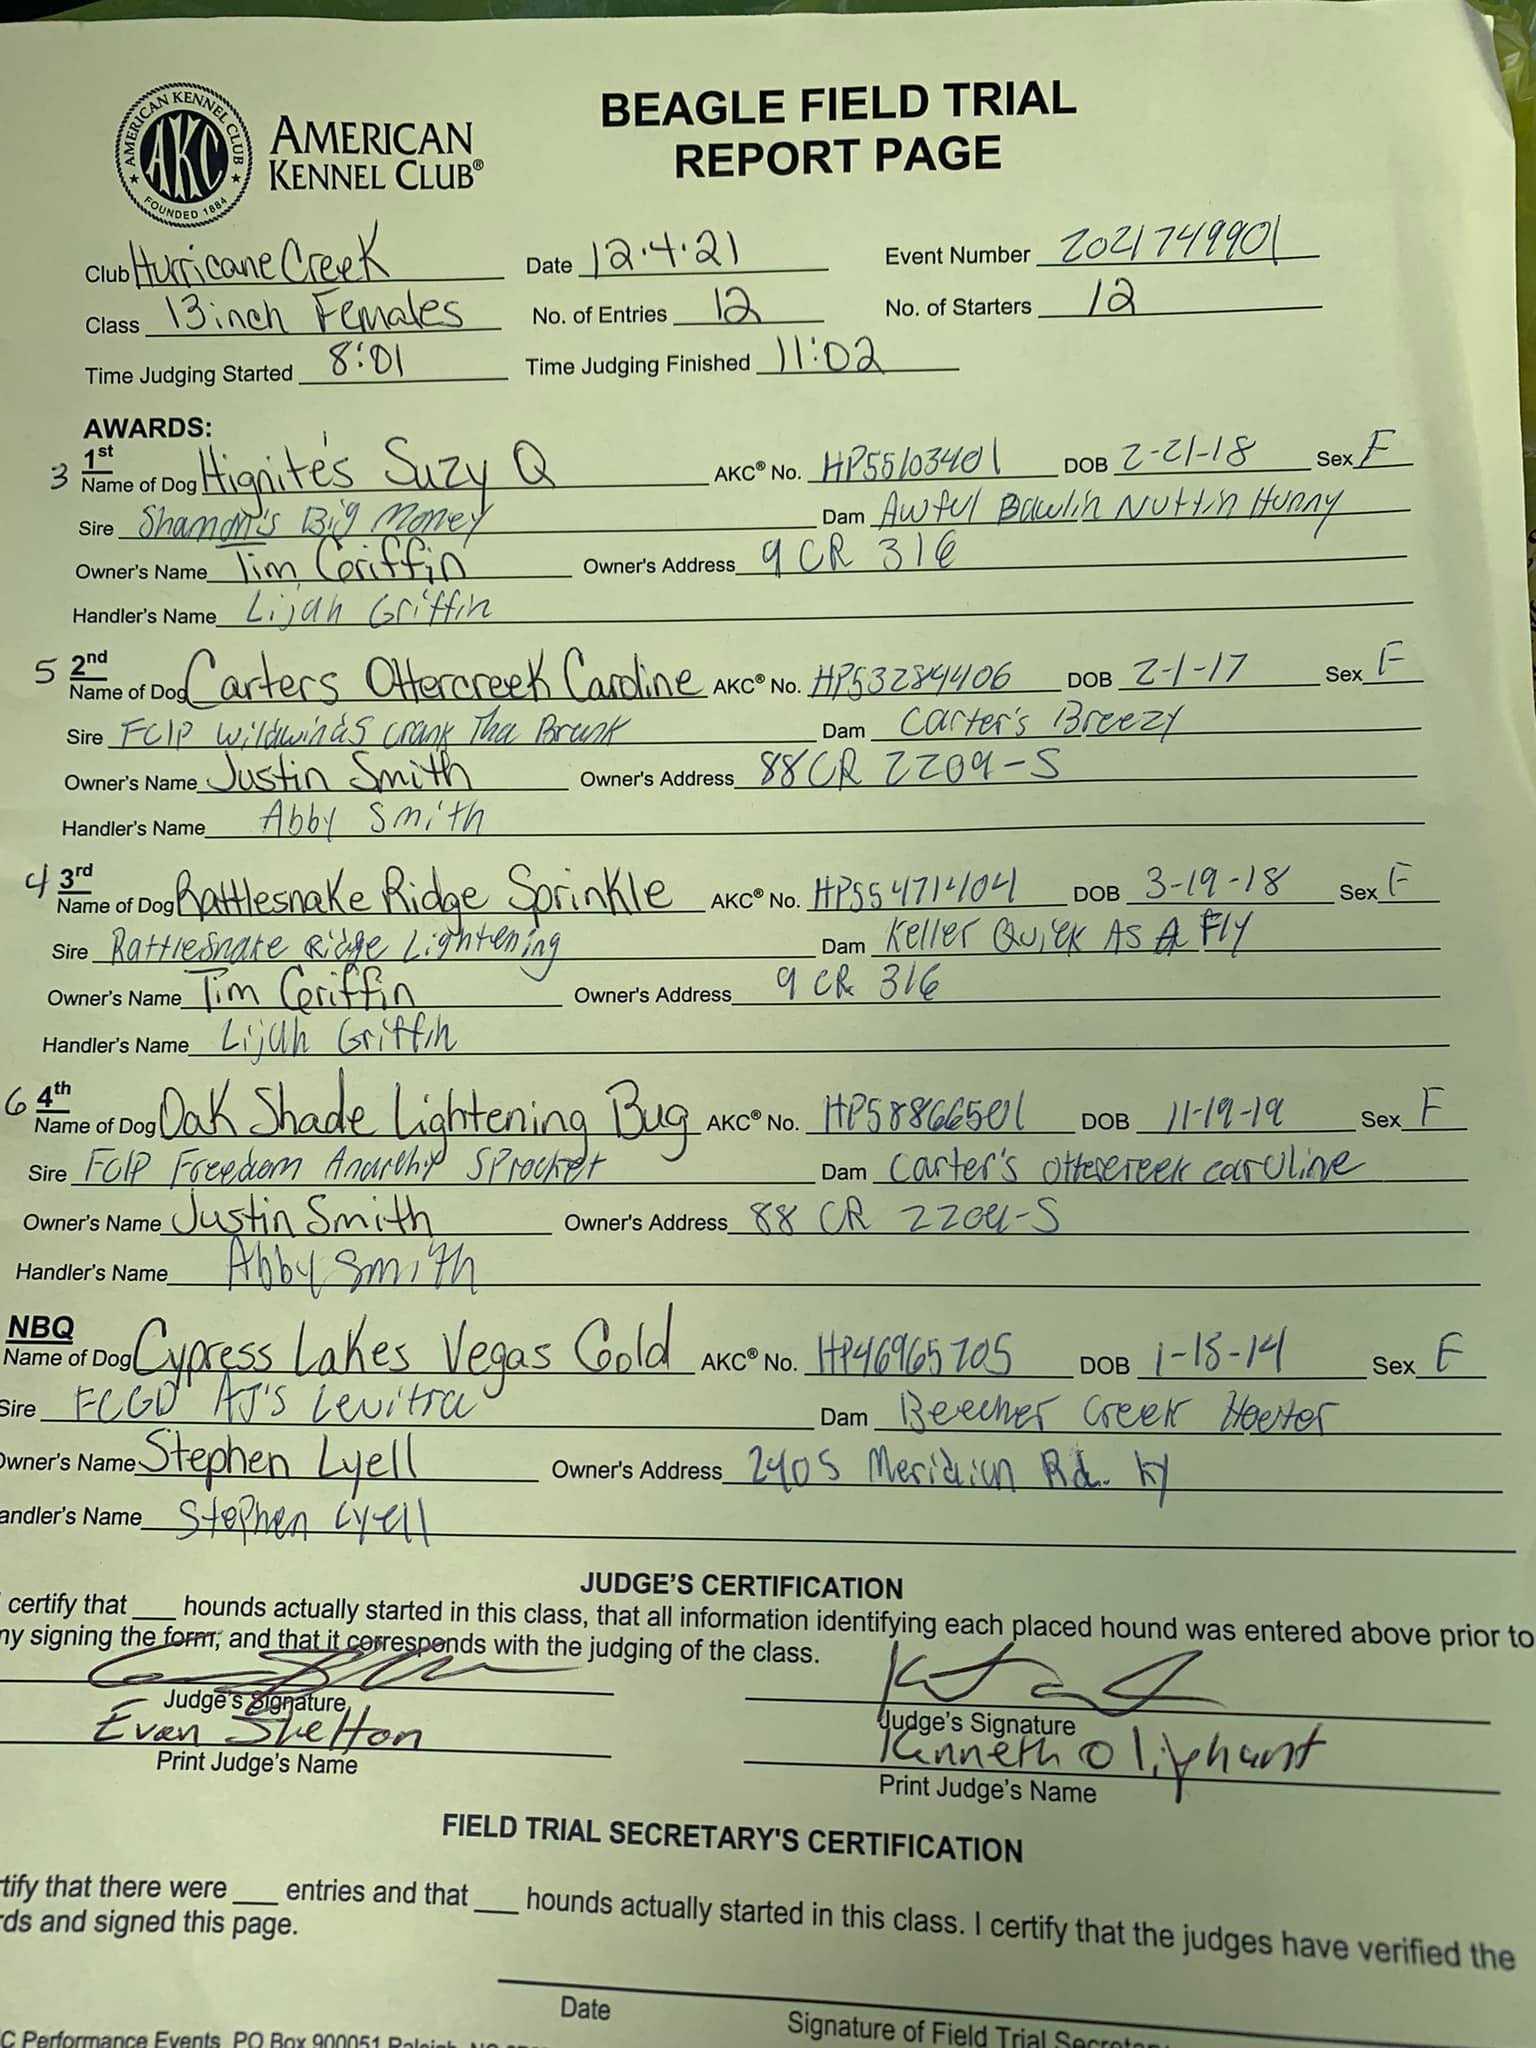 AMERICAN KENNEL CLUB
AKC
FOUNDED 1884
AMERICAN
KENNEL CLUB®
BEAGLE FIELD TRIAL
REPORT PAGE
Club Hurricane Creek Date 12.4.21 Event Number 2021749901
Class 13 inch Females No. of Entries 12 No. of Starters 12
Time Judging Started 8:01 Time Judging Finished 11:02
AWARDS:
3 1st
Name of Dog Hignite's Suzy Q AKC® No. HP55103401 DOB 2-21-18 Sex F
Sire Big Money Dam Awful Bawlin Nuttin Hunny
Owner's Name Tim Griffin Owner's Address 9 CR 316
Handler's Name Lijah Griffin
5 2nd
Name of Dog Carters Ottercreek Caroline AKC® No. HP53284406 DOB 2-1-17 Sex F
Sire FCIP Wildwinds Crank Tha Dam Carter's Breezy
Owner's Name Justin Smith Owner's Address 88 CR 2209-S
Handler's Name Abby Smith
4 3rd
Name of Dog Rattlesnake Ridge Sprinkle AKC® No. HP55471404 DOB 3-19-18 Sex F
Sire Rattlesnake Ridge Lightening Dam Keller Quick As A Fly
Owner's Name Tim Griffin Owner's Address 9 CR 316
Handler's Name Lijah Griffin
6 4th
Name of Dog Oak Shade Lightening Bug AKC® No. HP58866501 DOB 11-19-19 Sex F
Sire FCIP Freedom Sprocket Dam Carter's Ottercreek Caroline
Owner's Name Justin Smith Owner's Address 88 CR
Handler's Name Abby Smith
NBQ
Name of Dog Cypress Lakes Vegas Gold AKC® No. HP46965705 DOB Sex F
Sire FCGD AJ's Levitra Dam Beecher Creek
Owner's Name Stephen Lyell Owner's Address 2405 Meridian Rd. Ky
andler's Name Stephen Lyell
JUDGE'S CERTIFICATION
certify that ___ hounds actually started in this class, that all information identifying each placed hound was entered above prior to
my signing the form, and that it corresponds with the judging of the class.
Judge's Signature Judge's Signature
Evan Shelton Kenneth Oliphant
Print Judge's Name Print Judge's Name
FIELD TRIAL SECRETARY'S CERTIFICATION
rtify that there were ___ entries and that ___ hounds actually started in this class. I certify that the judges have verified the
rds and signed this page.
Date Signature of Field Trial Secre
C Performance Events, PO Box 900051 Raleigh,